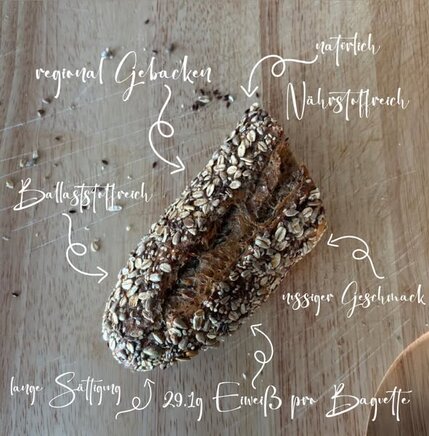 natürlich
regional Gebacken
Nährstoffreich
Ballaststoffreich
nussiger Geschmack
lange Sättigung
29.1g Eiweiß pro Baguette